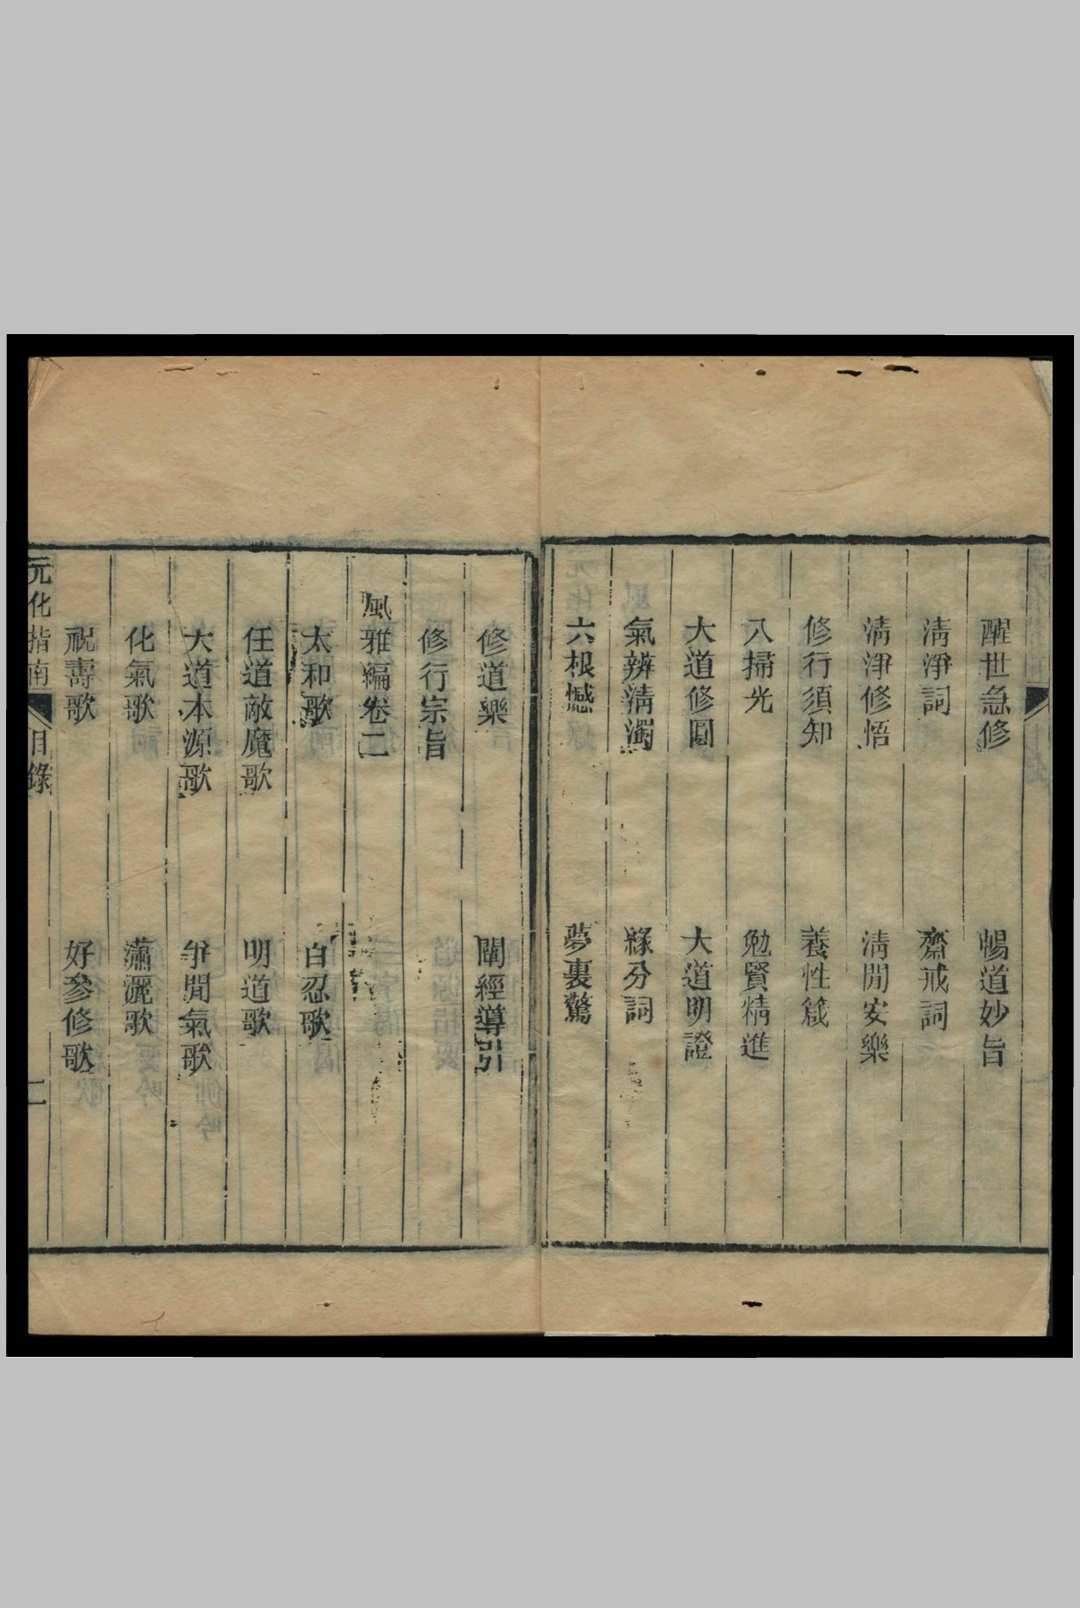 醒世急修　暢道妙旨
淸淨詞　齋戒詞
淸淨修悟　淸閒安樂
修行須知　養性箴
八掃光　勉賢精進
大道修圓　大道明證
氣辨淸濁　緣分詞
六根憾　夢裏驚
修道樂　闡經導引
修行宗旨
風雅編卷二
太和歌　百忍歌
任道敵魔歌　明道歌
大道本源歌　爭閒氣歌
化氣歌　瀟灑歌
祝壽歌　好參修歌
元化指南　目錄　二